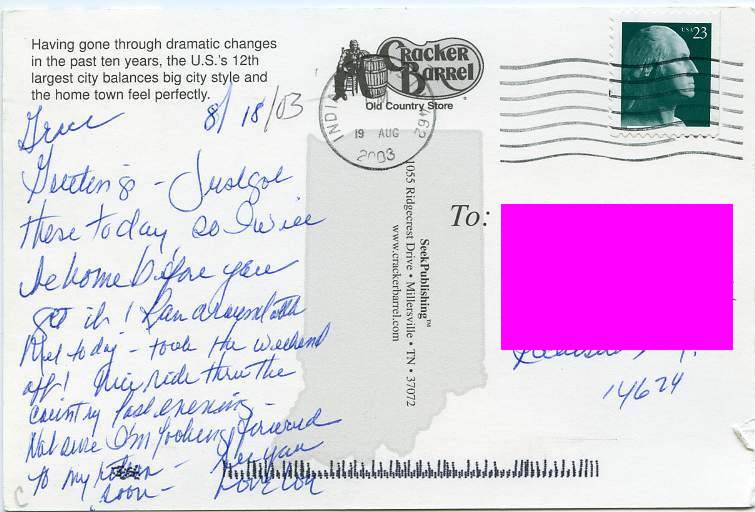 Having gone through dramatic changes
in the past ten years, the U.S.'s 12th
largest city balances big city style and
the home town feel perfectly.
Cracker
Barrel
Old Country Store
USA 23
INDIAN 462
19 AUG
2003
8/18/03
Grace
Greetings - Just got
these today so I will
be home before you
get it! Ran around with
Mel today - took the weekend
off! Nice ride thru the
country last evening -
Not sure I'm looking forward
to my - See you
soon - Love
To:
SeekPublishing™
1055 Ridgecrest Drive • Millersville • TN • 37072
www.crackerbarrel.com
14624